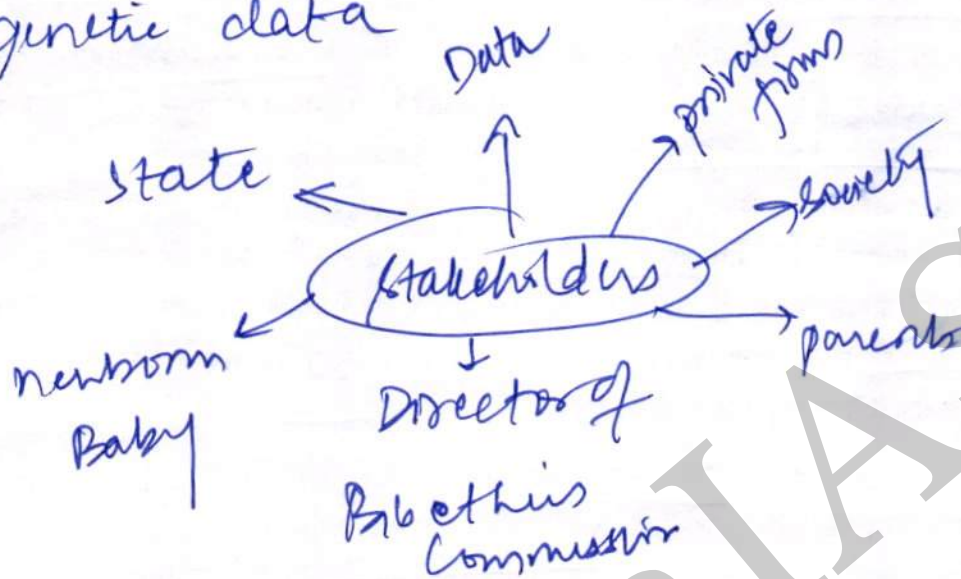 genetic data
Data
private
firms
state
society
stakeholders
newborn
Baby
parents
Director of
Bioethics
Commission
IAS